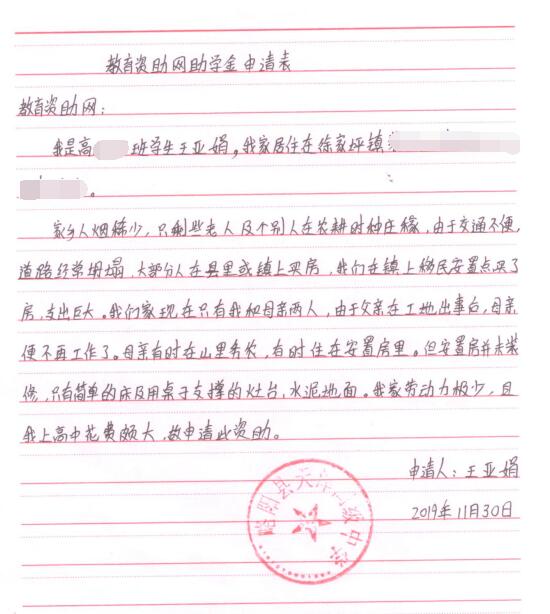 教育资助网助学金申请表
教育资助网：
我是高 班学生王亚娟，我家居住在徐家坪镇
。
家乡人烟稀少，只剩些老人及个别人在农耕时种庄稼，由于交通不便，
道路经常塌塌，大部分人在县里或镇上买房，我们在镇上移民安置点买了
房，支出巨大。我们家现在只有我和母亲两人，由于父亲在工地出事后，母亲
便不再工作了。母亲有时在山里务农，有时住在安置房里。但安置房并未装
修，只有简单的床及用桌子支撑的灶台、水泥地面。我家劳动力极少，且
我上高中花费颇大，故申请此资助。
申请人：王亚娟
2019年11月30日
略阳县天津高级中学